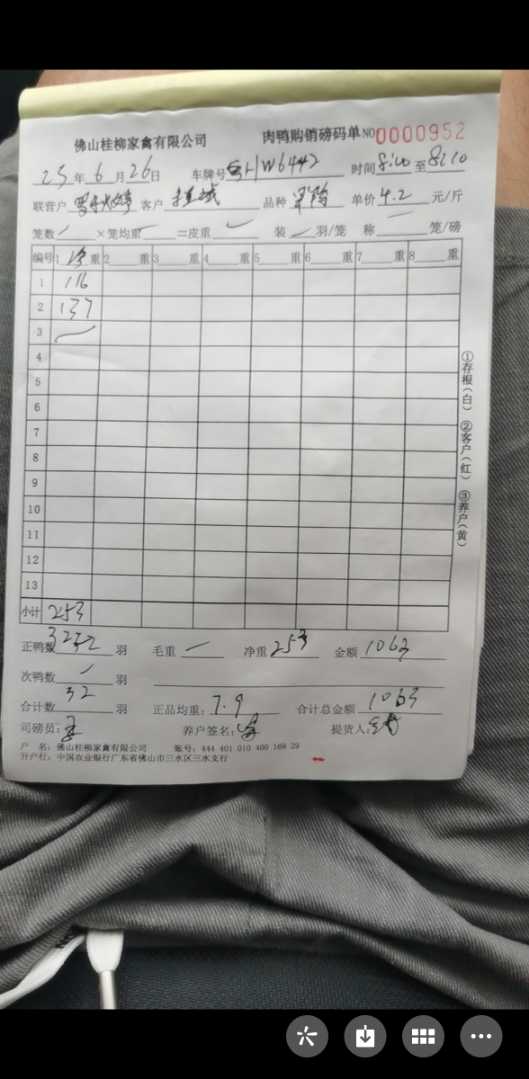 佛山桂柳家禽有限公司 肉鸭购销磅码单 NO0000952
25年6月26日 车牌号 HW6442 时间8:00至8:10
联营户 客户 品种 单价4.2元/斤
笼数 ×笼均重 =皮重 装 羽/笼 称 笼/磅
编号 1 净 重 2 重 3 重 4 重 5 重 6 重 7 重 8 重
1 116
2 137
3
4
5
6
7
8
9
10
11
12
13
小计 253
正鸭数 羽 毛重 净重253 金额1063
次鸭数 羽
合计数32羽 正品均重:7.9 合计总金额1063
司磅员: 养户签名: 提货人:
户 名:佛山桂柳家禽有限公司 账号:444 401 010 400 168 29
开户行:中国农业银行广东省佛山市三水区三水支行
①存根(白) ②客户(红) ③养户(黄)